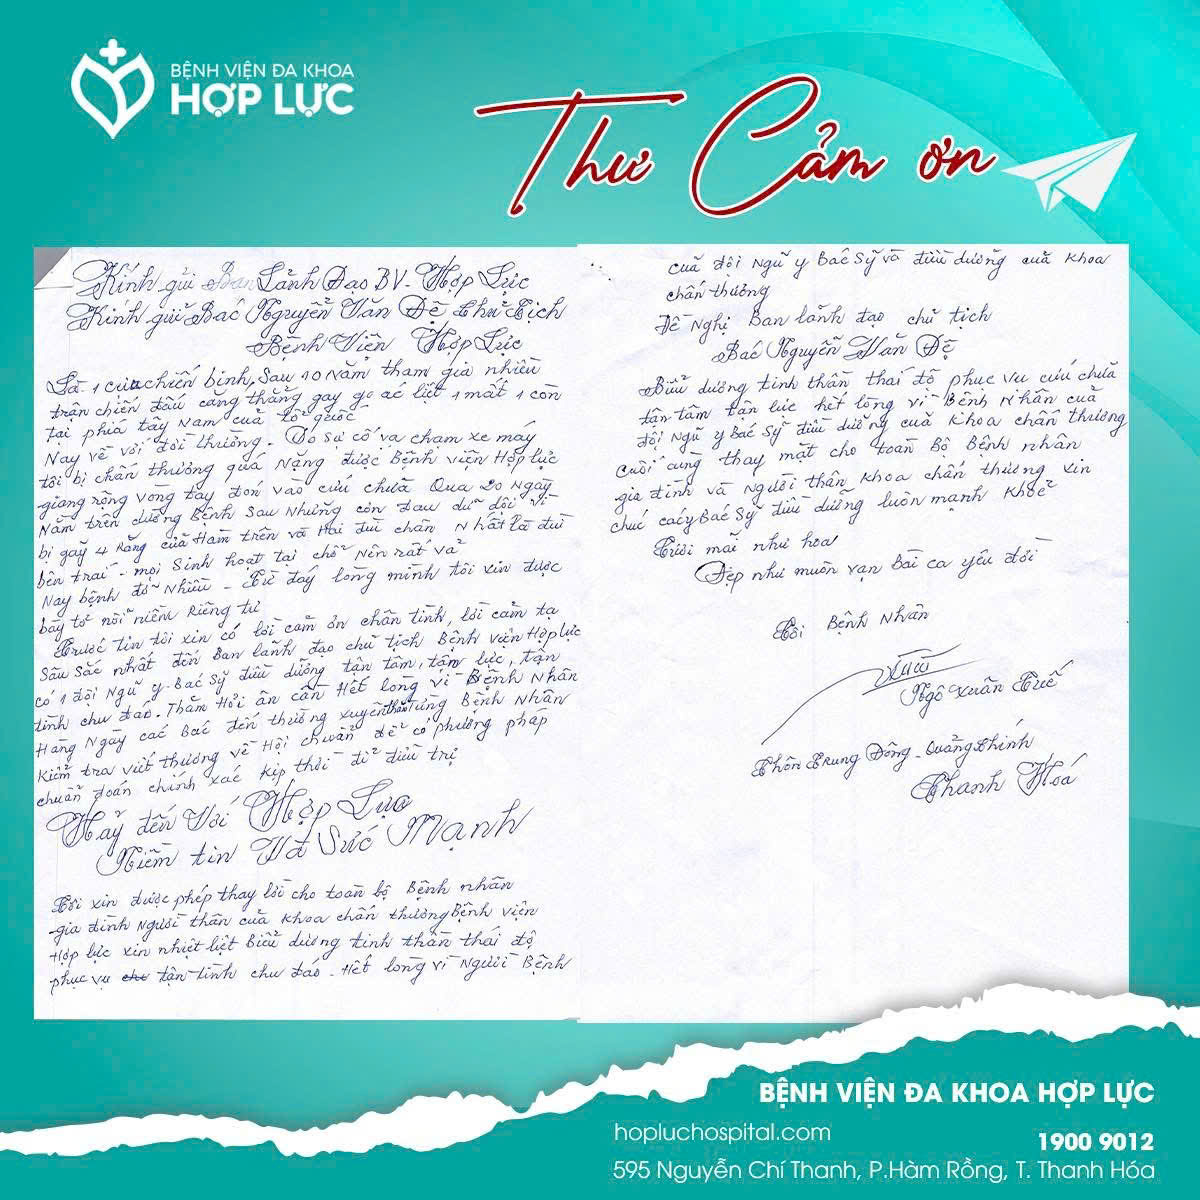 BỆNH VIỆN ĐA KHOA
HỢP LỰC
Thư Cảm ơn
Kính gửi Ban Lảnh Đạo BV - Hợp Lực
Kính gửi Bác Nguyễn Văn Đệ Chủ Tịch
Bệnh Viện Hợp Lực
Là 1 cựu chiến binh, Sau 10 Năm tham gia nhiều
trận chiến đấu căng thẳng gay go ác liệt 1 mất 1 còn
tại phía tây Nam của tổ quốc
Nay về với đời thường - Do sự cố va chạm xe máy
tôi bị chấn thương quá nặng được Bệnh viện Hợp lực
giang rộng vòng tay đón vào cứu chữa Qua 20 ngày
Nằm trên dường Bệnh Sau Những cơn đau dữ dội vì
bị gãy 4 Răng của Hàm trên và Hai đùi chân Nhất là đùi
bên trái - mọi Sinh hoạt tại chổ nên rất vả
Nay bệnh đở Nhiều - Từ đáy lòng mình tôi xin được
bày tỏ nổi niềm Riêng tư
Trước tin tôi xin có lời cảm ơn chân tình, lời cảm tạ
Sâu Sắc nhất đến Ban lảnh đạo chủ tịch Bệnh viện Hợp Lực
có 1 đội Ngủ y - Bác Sỹ điều dưỡng tận tâm, tâm lực, tận
tình chu đáo. Thăm Hỏi ân cần Hết lòng vì Bệnh Nhân
Hàng Ngày các Bác đến thường xuyên thăm từng Bệnh Nhân
kiểm tra viết thương về Hội chuẩn để có phương pháp
chuẩn đoán chính xác kịp thời để điều trị
Hảy đến Với Hợp Lực
Niềm tin Và Sức Mạnh
Tôi xin được phép thay lời cho toàn bộ Bệnh nhân
gia đình người thân của khoa chấn thương Bệnh viện
Hợp lực xin nhiệt liệt Biểu dương tinh thần thái độ
phục vụ tận tình chu đáo - Hết lòng vì Người Bệnh
của đội Ngũ y Bác Sỹ và điều dưỡng của khoa
chấn thương
Đề Nghị Ban lảnh đạo chủ tịch
Bác Nguyễn Văn Đệ
Biểu dương tinh thần thái độ phục vụ cứu chữa
tận tâm tận lực hết lòng vì Bệnh Nhân của
đội Ngũ y Bác Sỹ điều dưỡng của khoa chấn thương
Cuối cùng thay mặt cho toàn Bộ Bệnh nhân
gia đình và Người thân khoa chấn thương xin
chúc các y Bác Sỹ điều dưỡng luôn mạnh khoẻ
Tươi mãi như hoa
Đẹp như muôn vạn bài ca yêu đời
Tôi Bệnh Nhân
Ngô Xuân Tuế
Thôn Trung Đông - Quảng Chính
Thanh Hoá
BỆNH VIỆN ĐA KHOA HỢP LỰC
hopluchospital.com
1900 9012
595 Nguyễn Chí Thanh, P.Hàm Rồng, T. Thanh Hóa